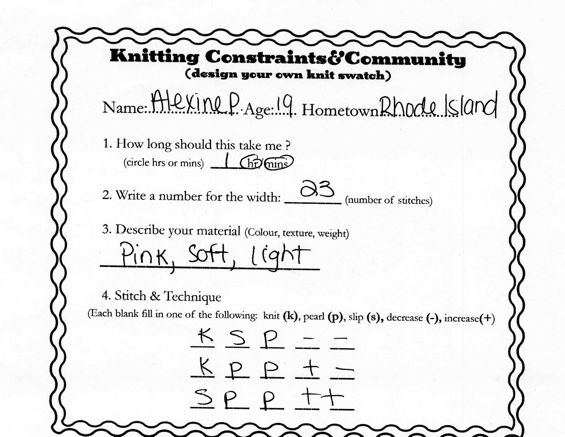 Knitting Constraints&Community
(design your own knit swatch)
Name: Alexine P. Age: 19. Hometown Rhode Island
1. How long should this take me ?
(circle hrs or mins) 1 hr/mins
2. Write a number for the width: 23 (number of stitches)
3. Describe your material (Colour, texture, weight)
Pink, Soft, light
4. Stitch & Technique
(Each blank fill in one of the following: knit (k), pearl (p), slip (s), decrease (-), increase(+)
K S P - -
K P P + -
S P P + +